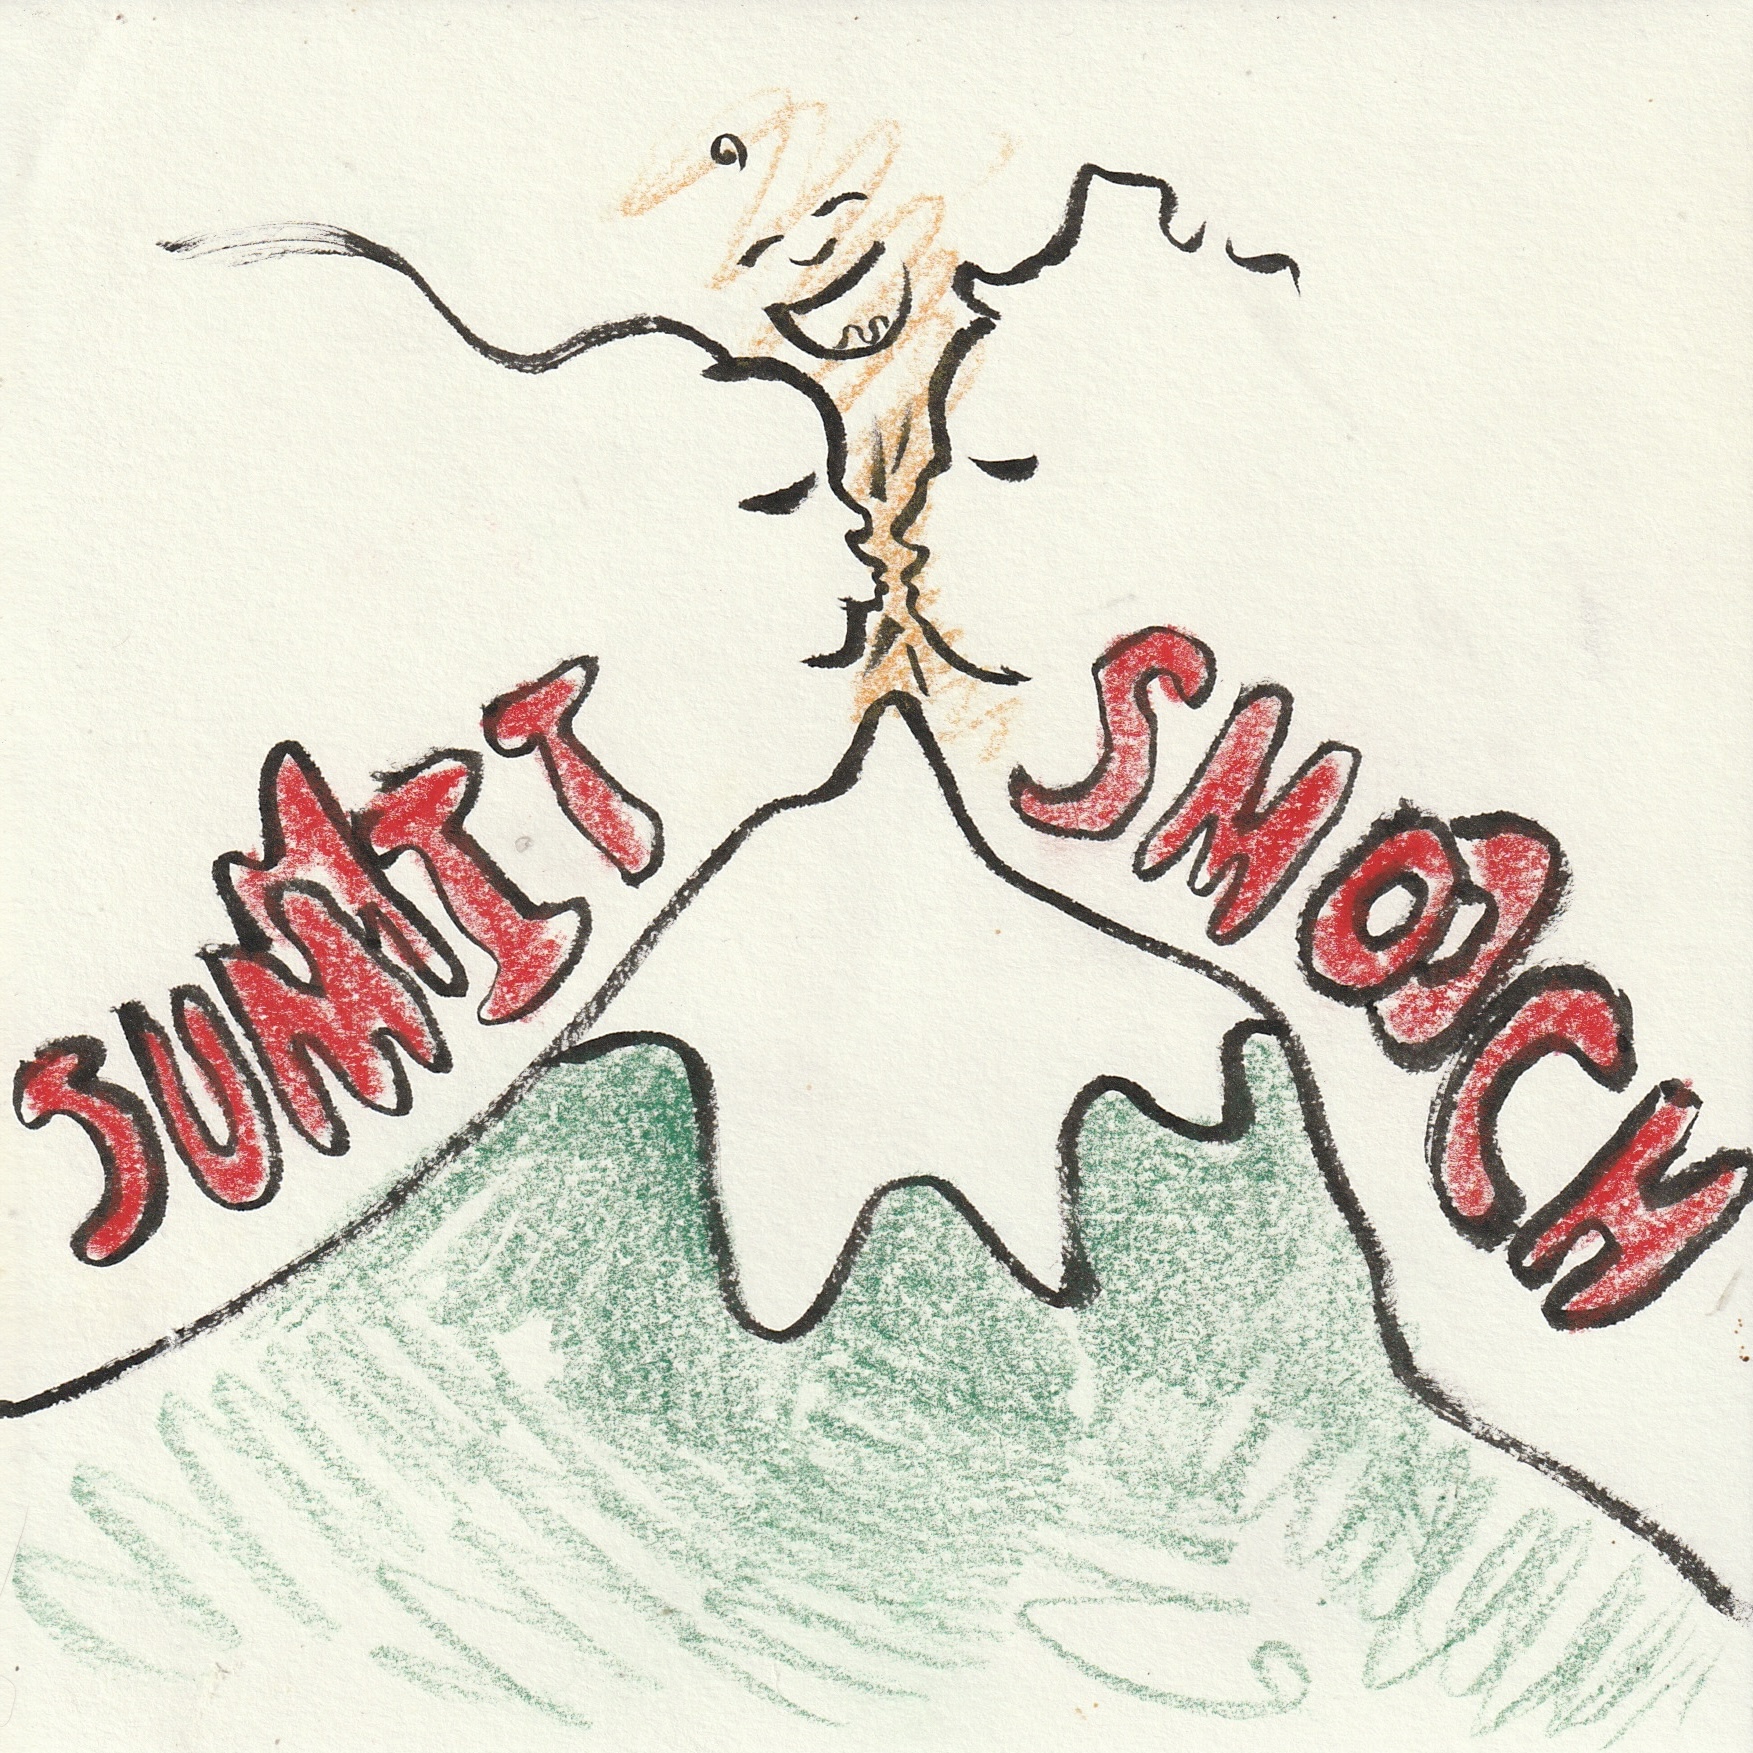 SUMMIT
SMOOCH